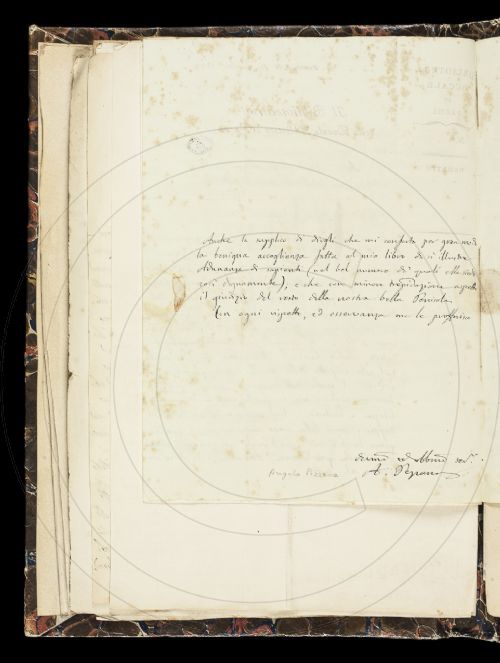 Anche la supplico di dirgli che mi conforta per gran modo
la benigna accoglienza fatta al mio libro da sì illustre
Adunanza di sapienti (nel bel numero de' quali Ella siede
così degnamente), e che con minore trepidazione aspetto
il giudizio del resto della nostra bella Penisola.
Con ogni rispetto, ed osservanza me le profferisco
A. Pezzana
Angelo Pezzana